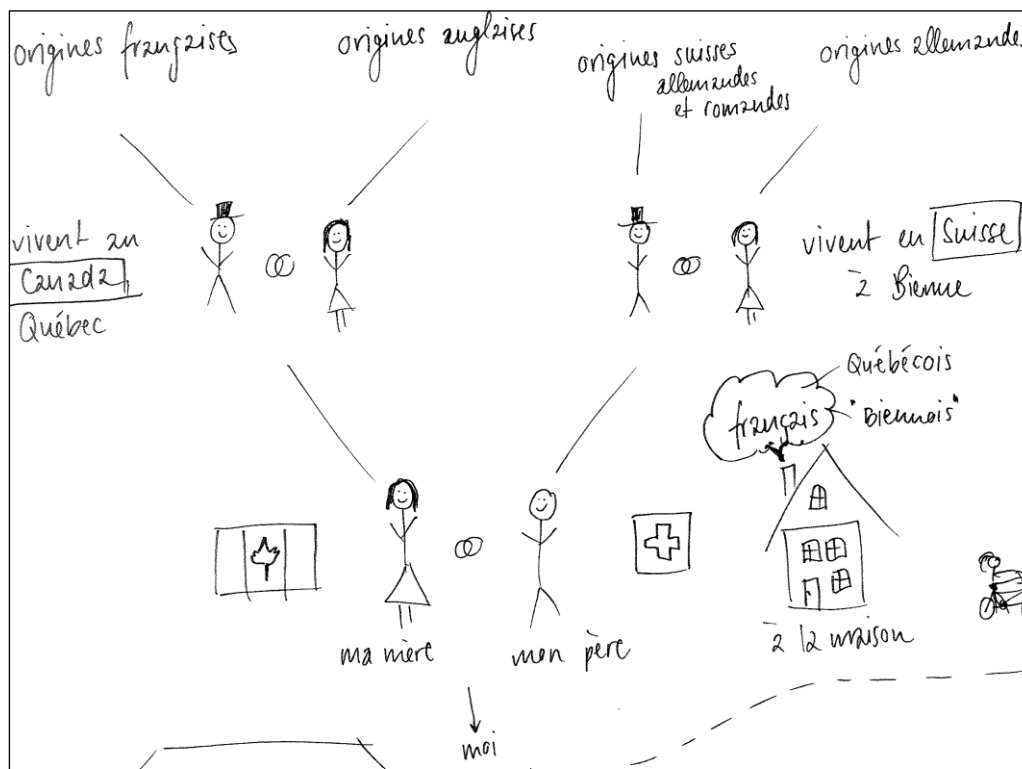 origines françaises
origines anglaises
origines suisses
allemandes
et romandes
origines allemandes
vivent au
Canada,
Québec
vivent en Suisse
à Bienne
Québécois
français
"Biennois"
ma mère
mon père
à la maison
moi